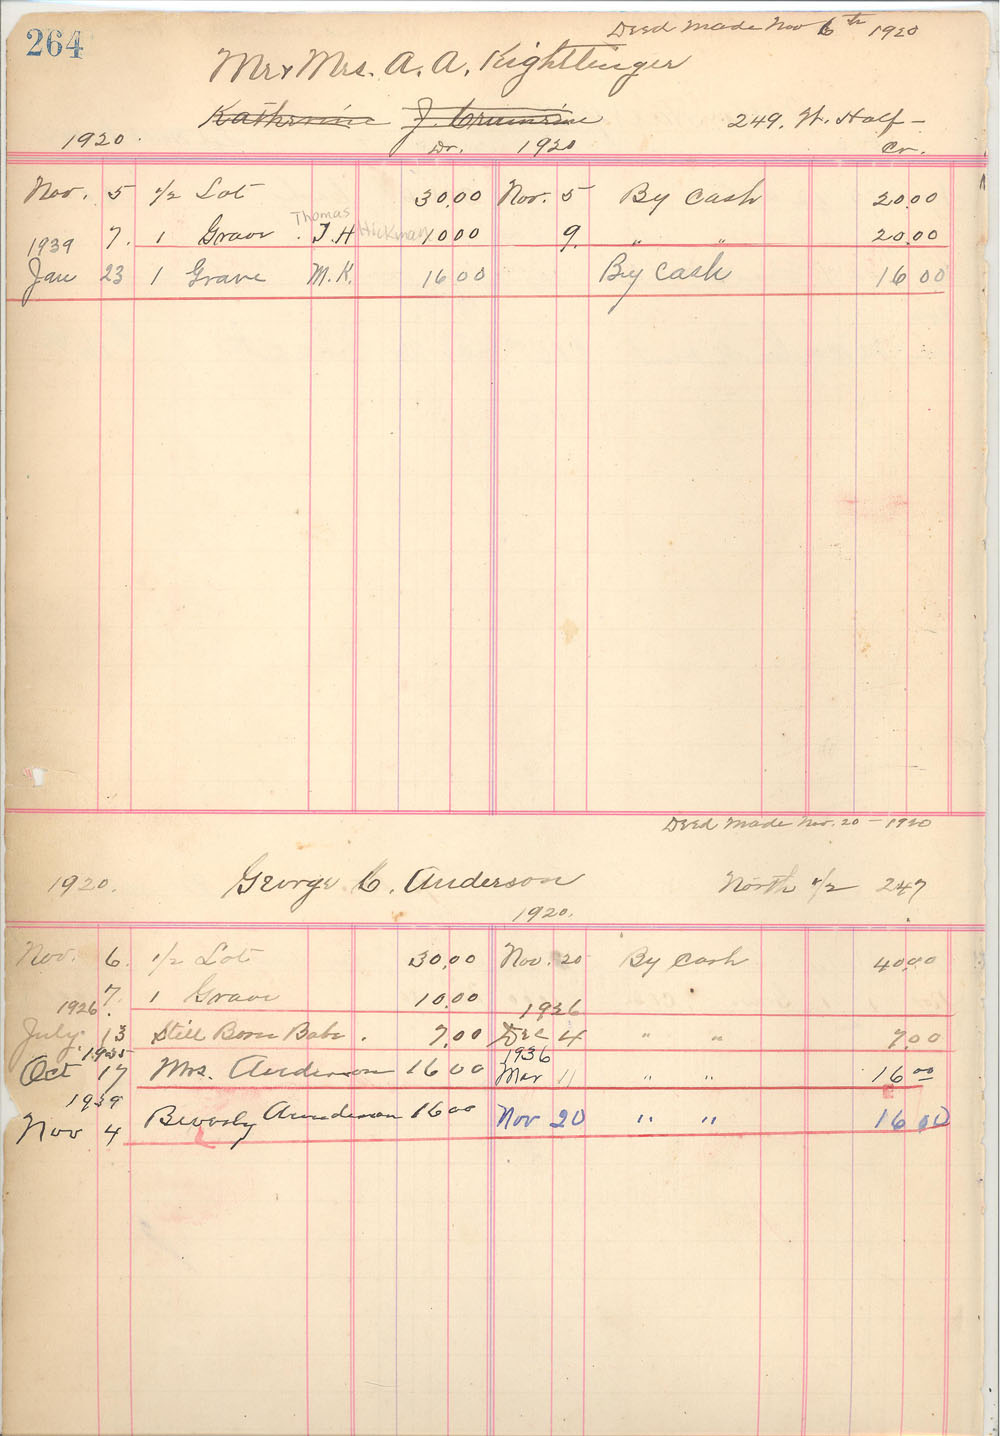 264
Deed Made Nov 6th 1920
Mr & Mrs. A. A. Kightlinger
Katherine J. Crumrine 249. W. Half-
1920. Dr. 1920 Cr.
Nov. 5 1/2 Lot 30.00 Nov. 5 By Cash 20.00
7. 1 Grave. Thomas T.H Hickman 10.00 9. " " 20.00
1939
Jan 23 1 Grave M.K. 16 00 By Cash 16 00
Deed Made Nov. 20 - 1920
1920. George C. Anderson North 1/2 247
1920.
Nov. 6. 1/2 Lot 30.00 Nov. 20 By Cash 40.00
7. 1 Grave 10.00
1926 1926
July. 13 Still Born Babe. 7.00 Dec 4 " " 7.00
1935 1936
Oct 17 Mrs. Anderson 16 00 Mar 11 " " 16 00
1939
Nov 4 Beverly Annderson 16 00 Nov 20 " " 16 00